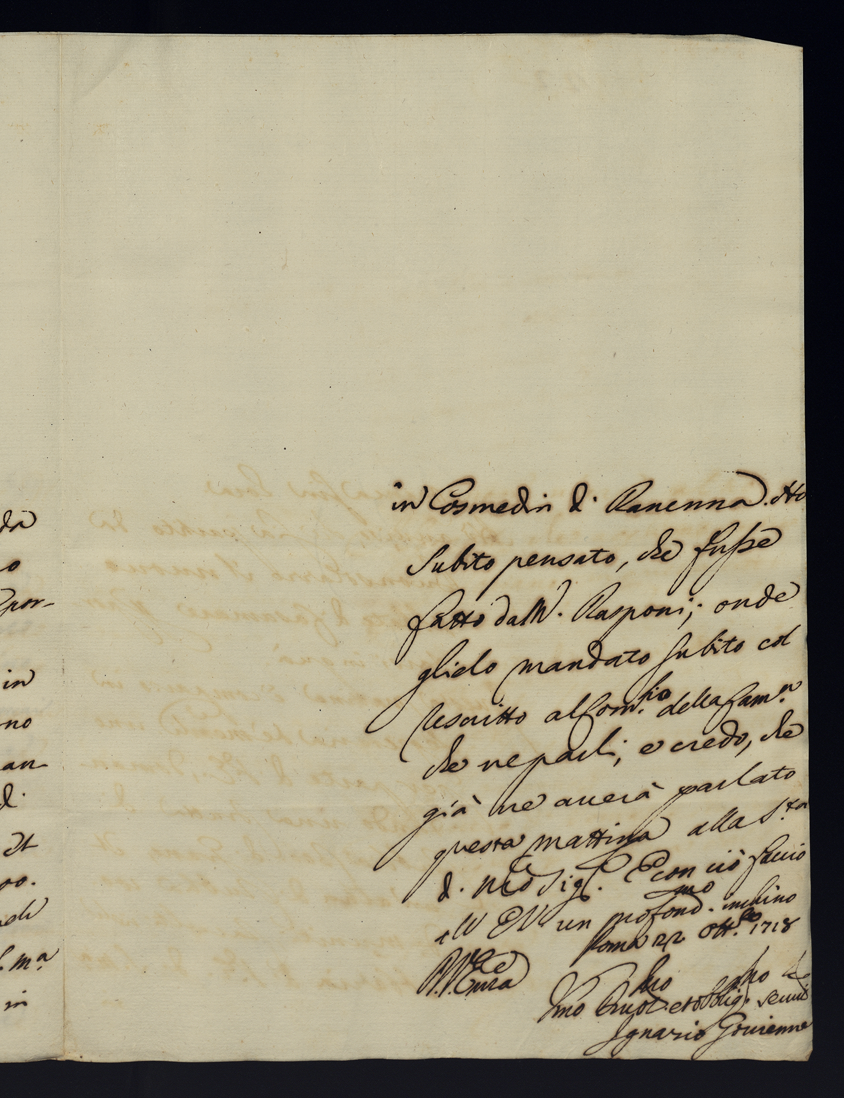 in Cosmedin di Ravenna. Ho
subito pensato, che fusse
fatto da M. Rasponi; onde
glielo mandato subito col
rescritto al Com.rio della Cam.ra
che ne parli; e credo, che
già ne averà parlato
questa mattina alla S.tà
di N.ro Sig.re E con ciò faccio
all' EV un profond.mo inchino
Roma 22 Ott.bre 1718
Ignazio
da
o
por-
in
no
an-
di
et
00.
in